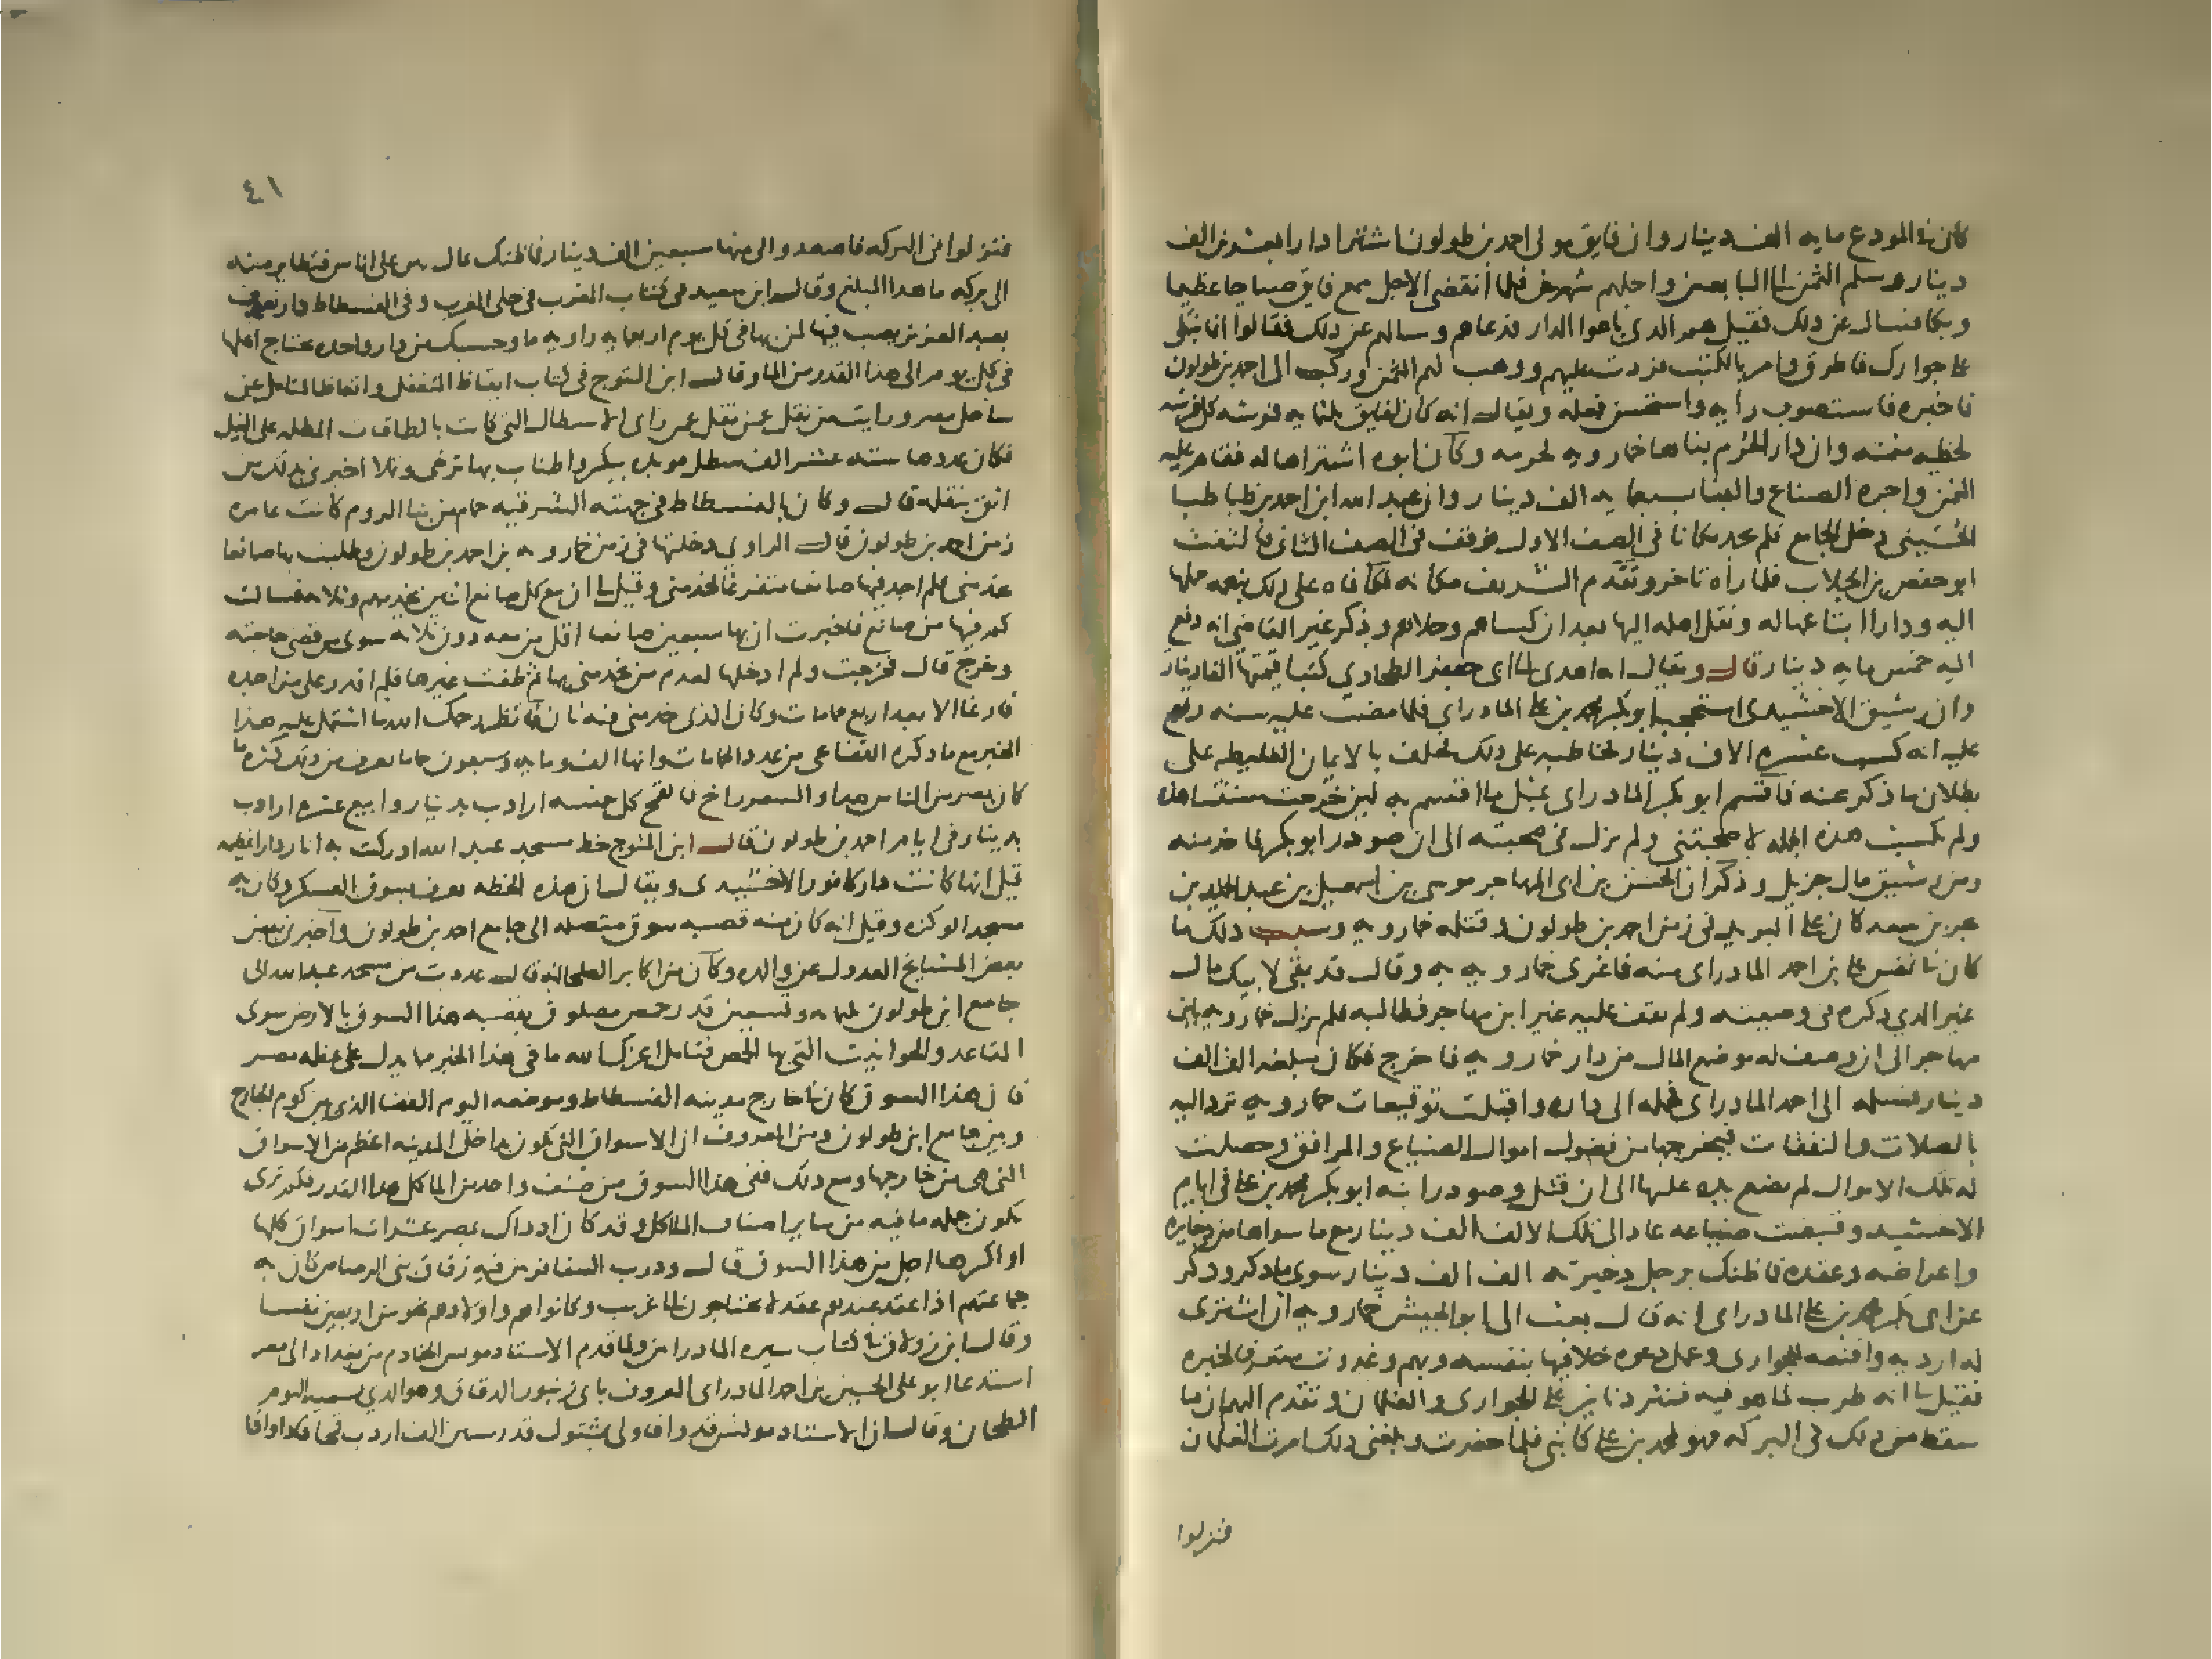 كان في المودع مايه الف دينار وان فايق مولى احمد بن طولون اشترا دارا بعشرين الف
دينار وسلم الثمن الى البايعين واجلهم شهرين فلما انقضى الاجل سمع فايق صياحا عظيما
وبكا فسال عن ذلك فقيل هم الذين باعوا الدار فدعاهم وسالهم عن ذلك فقالوا انما نبكى
على جوارك فاطرق وامر بالكتب فردت عليهم ووهب لهم الثمن وركب الى احمد بن طولون
فاخبره فاستصوب رايه واستحسن فعله ويقال انه كان لفايق ثلثمايه فرشه كل فرشه
لحظيه مثمنه وان دار الحرم بناها خمارويه لحرمه وكان ابوه اشتراها له فقام عليه
الثمن واجره الصناع والبنا سبعمايه الف دينار وان عبد الله ابن احمد بن طباطبا
الحسيني دخل الجامع فلم يجد مكانا في الصف الاول فوقف في الصف الثاني فالتفت
ابو حفص بن الجلاب فلما رأه تاخر وتقدم الشريف مكانه فكافاه على ذلك بنعمه حملها
اليه ودارا ابتاعها له ونقل اهله اليها بعد ان كساهم وحلاهم وذكر غير القاضي انه دفع
اليه خمس مايه دينار قال ويقال انه اهدى الى ابى جعفر الطحاوي كتبا قيمتها الف دينار
وان رشيق الاخشيدى استحجبه ابو بكر محمد بن على المادراى فلما مضت عليه سنه رفع
عليه انه كسب عشره الاف دينار فخاطبه على ذلك فحلف بالايمان الغليظه على
بطلان ما ذكر عنه فاقسم ابو بكر المادراى بمثل ما اقسم به لين خرجت سنتنا هذه
ولم تكسب هذه الجمله لا صحبتني ولم يزل في صحبته الى ان صودر ابو بكر فاخذ منه
ومن رشيق مال جزيل وذكر ان الحسن بن ابى المهاجر موسى بن اسمعيل بن عبد الحميد بن
بحر بن سعد كان على البريد في زمن احمد بن طولون وقتله خمارويه وسبب ذلك ما
كان في نفس على بن احمد المادراى منه فاغرى خمارويه به وقال قد بقي لابيك مال
غير الذي ذكره في وصيته ولم يقف عليه غير ابن مهاجر فطالبه فلم يزل خمارويه بابن
مهاجر الى ان وصف له موضع المال من دار خمارويه فاخرج فكان مبلغه الف الف
دينار فسلمه الى احمد المادراى فحمله الى داره واقبلت توقيعات خمارويه ترد اليه
بالصلات والنفقات فيخرجها من فضول اموال الضياع والمرافق وحصلت
له تلك الاموال لم يضع يده عليها الى ان قتل وصودر ابنه ابو بكر محمد بن على في ايام
الاخشيد وقبضت ضياعه عاد الى تلك الالف الف دينار مع ما سواها من ذخايره
واعراضه وعقده فما ظنك برجل ذخيرته الف الف دينار سوى ما ذكر وذكر
عن ابى بكر محمد بن على المادراى انه قال بعث الى ابو الجيش خمارويه ان اشترى
له اردية واقنعه للجوارى وعمل دعوه خلا فيها بنفسه وبهم وغدوت متعرفا لخبره
فقيل لى انه طرب لما هو فيه فنثر دنانير على الجوارى والغلمان وتقدم اليهم ان ما
سقط من ذلك في البركه فهو لمحمد بن على كاتبي فلما حضرت وبلغني ذلك امرت الغلمان
فنزلوا
٤١
فنزلوا في البركه فاصعدوا الى منها سبعين الف دينار فما ظنك بمال نثر على اناس فتطاير منه
الى بركه ما هذا المبلغ وقال ابن سعيد في كتاب المغرب في حلى المغرب وفي الفسطاط دار تعرف
بعبد العزيز يصب فيها لمن بها في كل يوم اربعمايه راويه ما وحسبك من دار واحده يحتاج اهلها
في كل يوم الى هذا القدر من الما وقال ابن المتوج في كتاب ايقاظ المتغفل واتعاظ المتامل عن
ساحل مصر ورايت من نقل عن نقل عمن راى الاسطال التي كانت بالطاقات المطله على النيل
فكان عددها سته عشر الف سطل موبده ببكر واطناب بها ترخى وتملا اخبرني بذلك من
اثق بنقله قال وكان بالفسطاط في جهته الشرقيه حمام من بنا الروم كانت عامره
زمن احمد بن طولون قال الراوي دخلتها في زمن خمارويه بن احمد بن طولون وطلبت بها صانعا
يخدمنى فلم اجد فيها صانعا متفرغا لخدمتي وقيل لي ان مع كل صانع اثنين يخدمهم وثلاثه فسالت
كم فيها من صانع فاخبرت ان بها سبعين صانعا اقل من معه دون ثلاثه سوى من قضى حاجته
وخرج قال فخرجت ولم ادخلها لعدم من يخدمني بها ثم طفت غيرها فلم اقدر على من اجده
فارغا الا بعد اربع حمامات وكان الذى خدمني فيه نايبا فانظر رحمك الله ما اشتمل عليه هذا
الخبر مع ما ذكره القضاعى من عدد الحمامات وانها الف ومايه وسبعون حماما تعرف من ذلك كثره ما
كان بمصر من الناس هذا والسعر راخ فالقمح كل خمسه ارادب بدينار وابيع عشره ارادب
بدينار في ايام احمد بن طولون قال ابن المتوج خط مسجد عبد الله ادركت به اثار دار عظيمه
قيل انها كانت دار كافور الاخشيدى ويقال ان هذه الخطه تعرف بسوق العسكر وكان به
مسجد الوكزه وقيل انه كان منه قصبه سوق متصله الى جامع احمد بن طولون واخبرني بعض
بعض المشايخ العدول عن والده وكان من اكابر الصلحا انه قال عددت من مسجد عبد الله الى
جامع ابن طولون ثلثمايه وتسعين قدر حمص مصلوق بقصبه هذا السوق بالارض سوى
المقاعد والحوانيت التي بها الحمص فتامل اعزك الله ما في هذا الخبر مما يدل على عظمه مصر
فان هذا السوق كان خارج مدينه الفسطاط وموضعه اليوم الفضا الذي بين كوم الجارح
وبين جامع ابن طولون ومن المعروف ان الاسواق التي تكون بداخل المدينه اعظم من الاسواق
التي هى من خارجها ومع ذلك ففي هذا السوق من صنف واحد من الماكل هذا القدر فكم ترى
تكون جمله ما فيه من ساير اصناف المآكل وقد كان اذ ذاك بمصر عشرات اسواق كلها
او اكثرها اجل من هذا السوق قال ودرب السفافير بن فيه زقاق بنى الرصاص كان به
جماعه اذا عقد عندهم عقد لا يحتاجون الى غريب وكانوا هم واولادهم نحو من اربعين نفسا
وقال ابن زولاق في كتاب سيره المادراين ولما قدم الاستاد مونس الخادم من بغداد الى مصر
استدعا ابو على الحسين بن احمد المادراى المعروف بابى زنبور الدقاق وهو الذي نسميه اليوم
الطحان وقال ان الاستاد مونس قد وافا ولى بمشتول قدر ستين الف اردب قمحا فاذا وافا